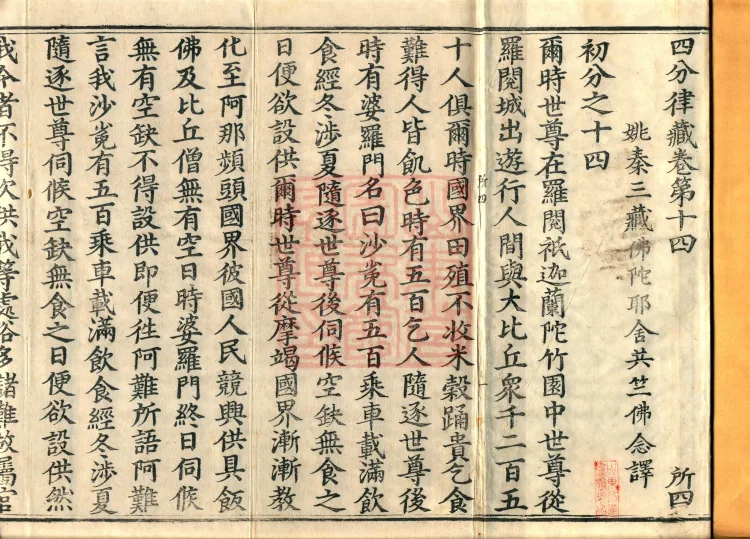 四分律藏卷第十四 所四
姚秦三藏佛陀耶舍共竺佛念譯
初分之十四
爾時世尊在羅閱祇迦蘭陀竹園中世尊從
羅閱城出遊行人間與大比丘眾千二百五
所四
十人俱爾時國界田殖不收米穀踊貴乞食
難得人皆飢色時有五百乞人隨逐世尊後
時有婆羅門名曰沙㝹有五百乘車載滿飲
食經冬涉夏隨逐世尊後伺候空缺無食之
日便欲設供爾時世尊從摩竭國界漸漸教
化至阿那頻頭國界彼國人民競興供具飯
佛及比丘僧無有空日時婆羅門終日伺候
無有空缺不得設供即便往阿難所語阿難
言我沙㝹有五百乘車載滿飲食經冬涉夏
隨逐世尊伺候空缺無食之日便欲設供然
我今者不得次供我等處俗多諸難故屬官